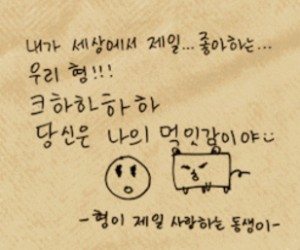 내가 세상에서 제일...좋아하는...
우리 형!!!
크하하하하
당신은 나의 먹잇감이야
-형이 제일 사랑하는 동생이-